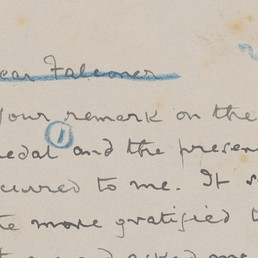 ear Falconer
Your remark on the
1
edal and the presen
cured to me. It s
e more gratified t